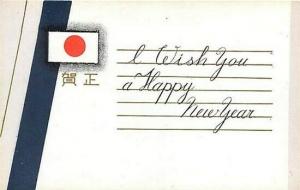 I Wish You
a Happy
New Year
賀正